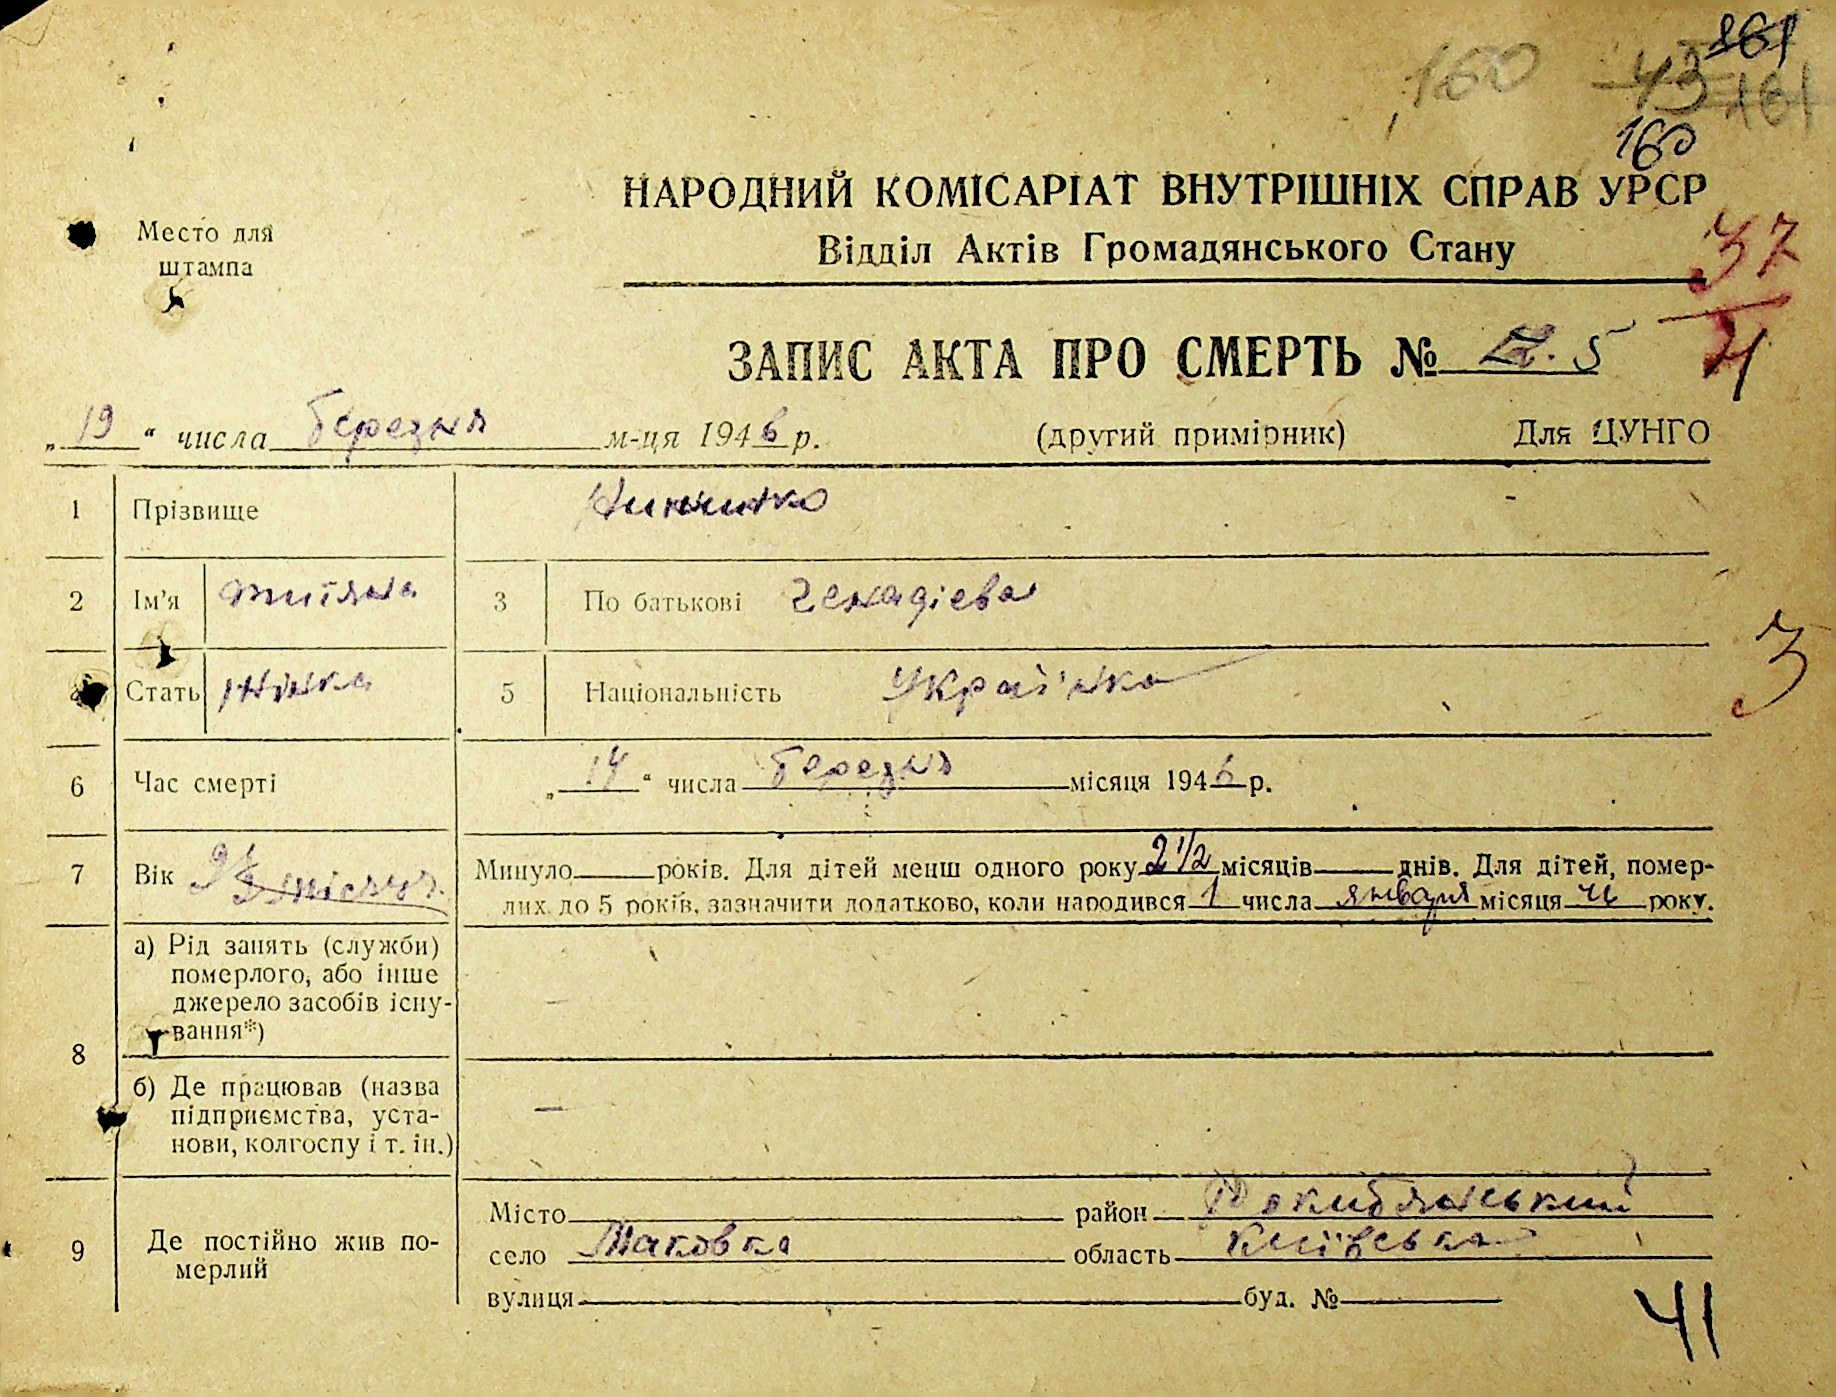 161
160 43 161
160
НАРОДНИЙ КОМІСАРІАТ ВНУТРІШНІХ СПРАВ УРСР
Место для
штампа
Відділ Актів Громадянського Стану
37
4
ЗАПИС АКТА ПРО СМЕРТЬ № 5
„19“ числа березня м-ця 1946 р. (другий примірник) Для ЦУНГО
1 Прізвище
2 Ім'я 3 По батькові Генадієва
3
Стать жінка 5 Національність Українка
6 Час смерті „14“ числа березня місяця 1946 р.
7 Вік Минуло років. Для дітей менш одного року 2 1/2 місяців днів. Для дітей, помер-
лих до 5 років, зазначити додатково, коли народився 1 числа января місяця року.
8
а) Рід занять (служби)
померлого, або інше
джерело засобів існу-
вання*)
б) Де працював (назва
підприємства, уста-
нови, колгоспу і т. ін.)
9 Де постійно жив по-
мерлий
Місто район Рокитянський
село Маковка область Київська
вулиця буд. №
41